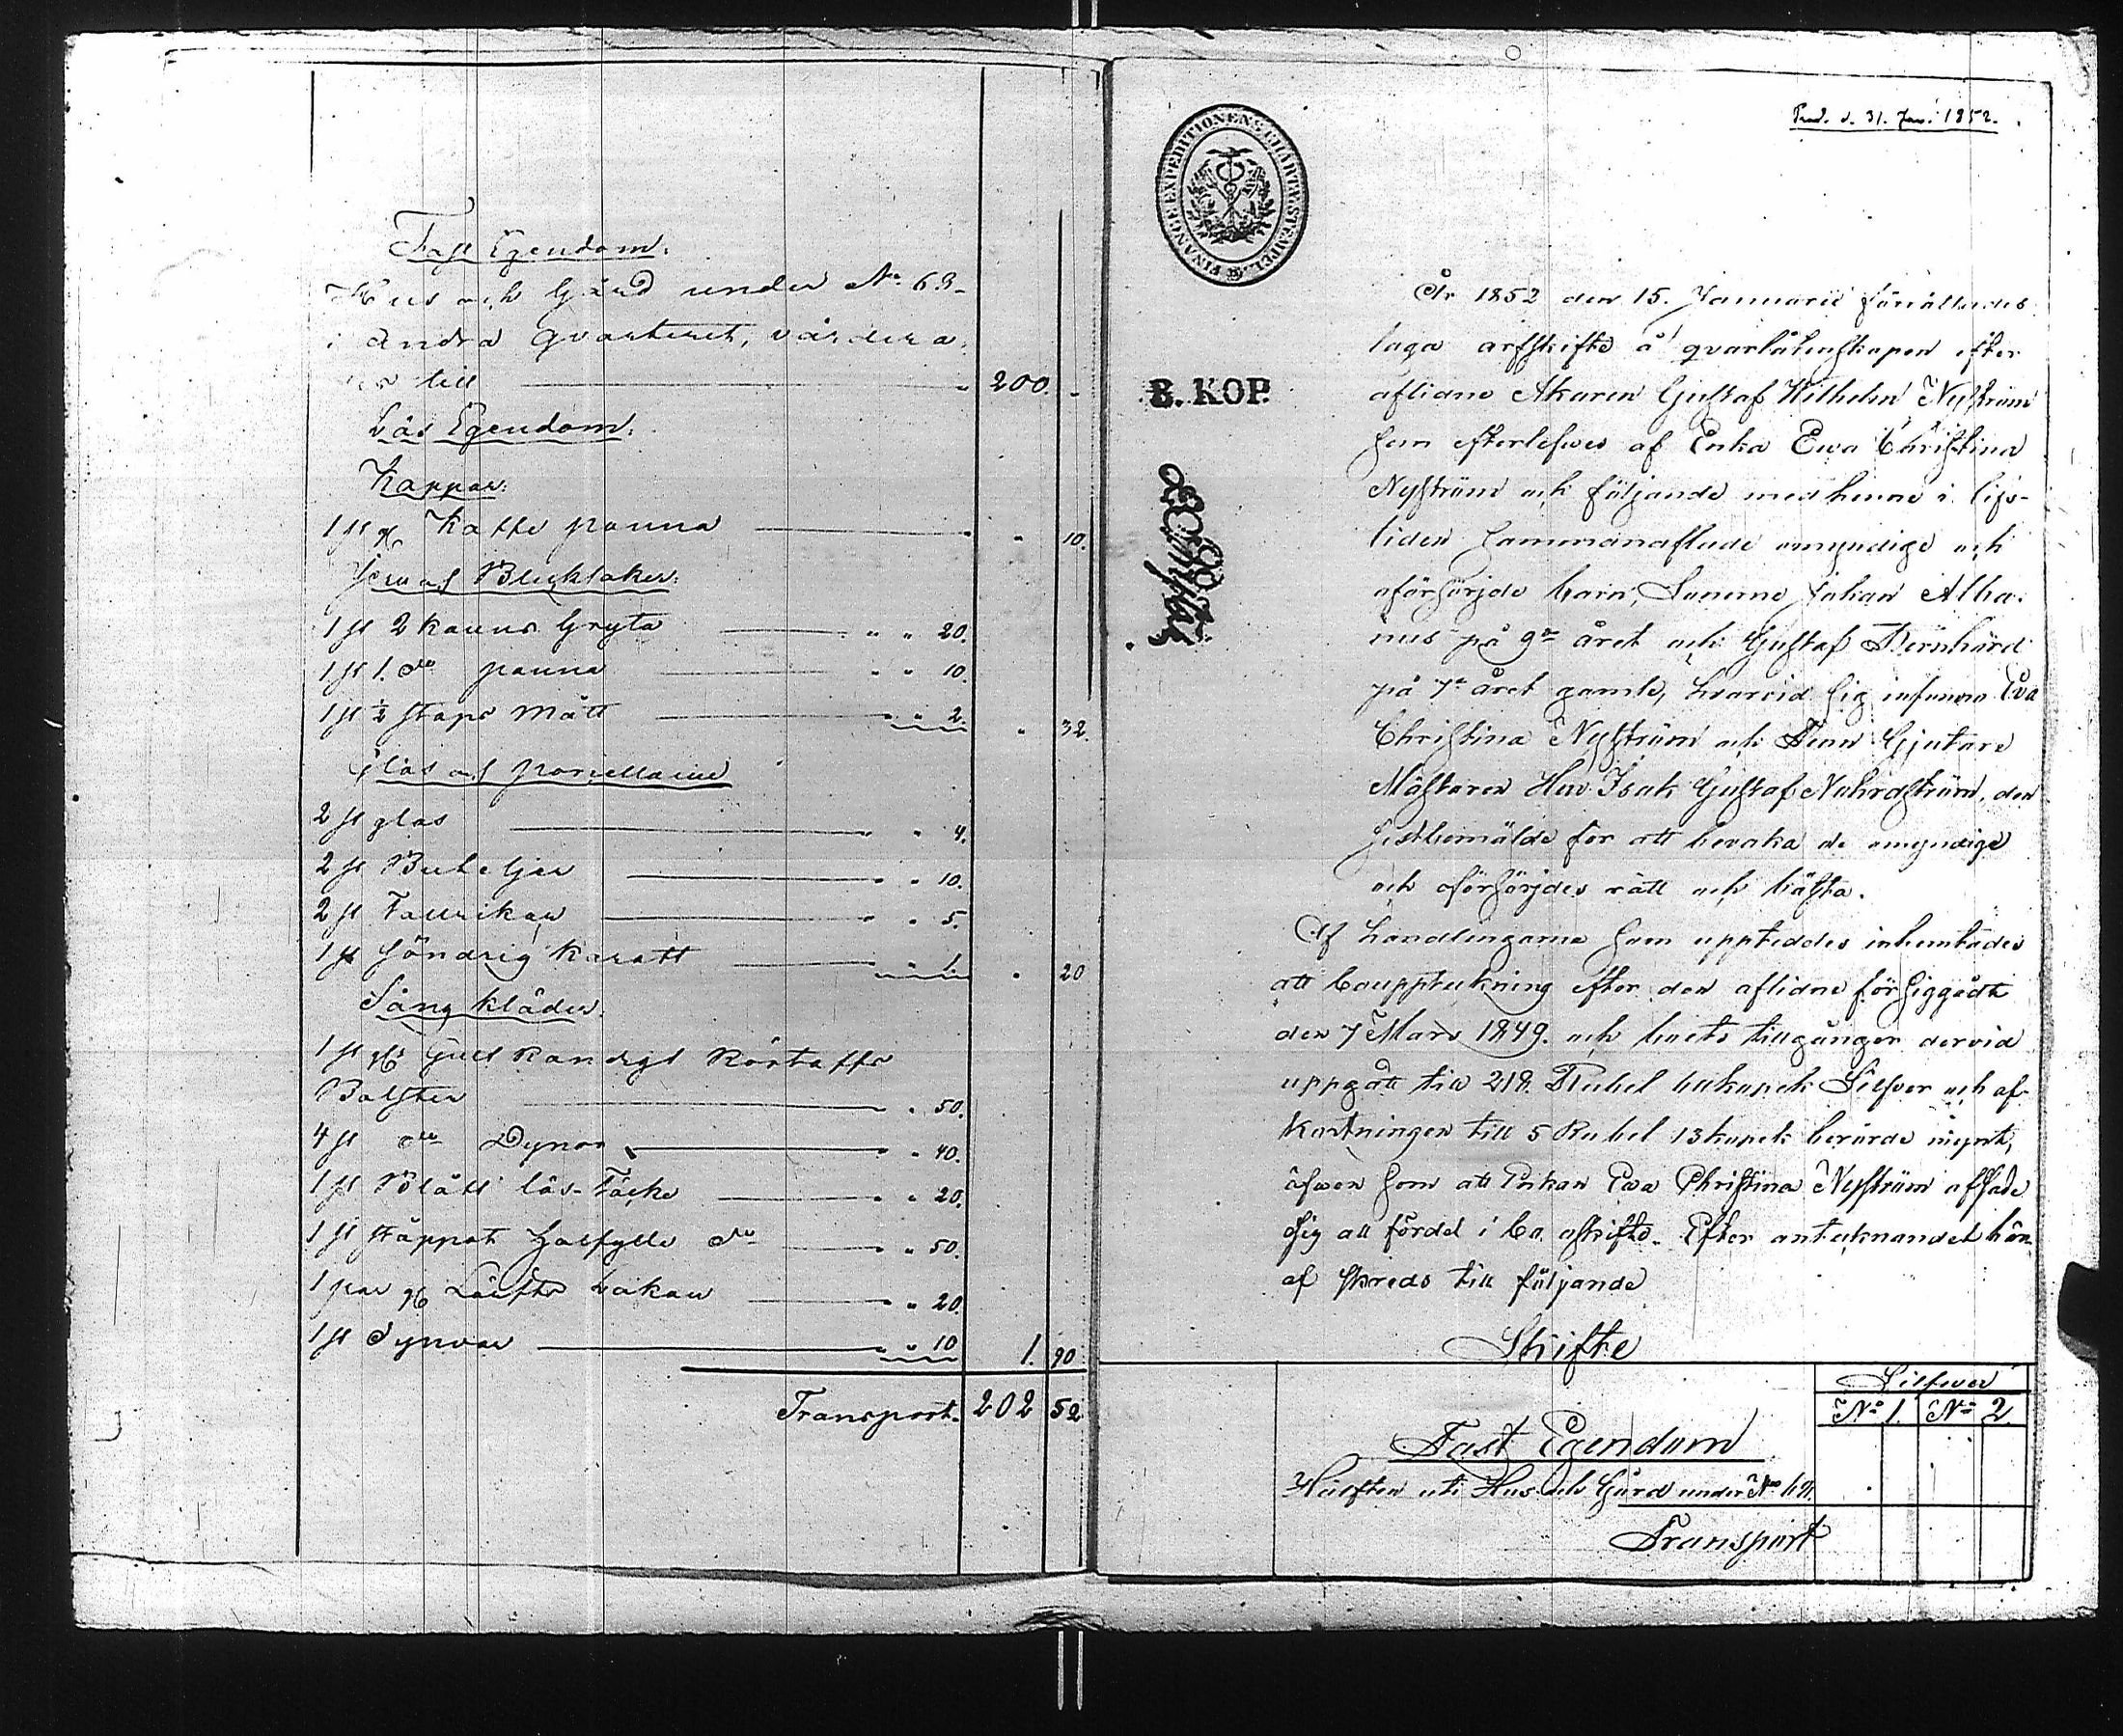 Fast Egendom.
Hus och Gård under No 63
i Andra Qvarteret, värdera
till 200. -
Lös Egendom.
Koppar:
1 st Kaffe panna " 10.
Jern och Bleksaker:
1 st 2 kanns Gryta " " 20.
1 st 1. do panna " " 10.
1 st ½ stops Mått " " 2. " 32.
Glas och porcellaine
2 st glas " " 4.
2 st Buteljer " " 10.
2 st Tallrikar " " 5.
1 st söndrig karaff " " 1. " 20
Sängkläder.
1 st Gulrandigt
Bolster " 50.
4 st do Dynor " 40.
1 st Blått Täcke " " 20.
1 st do " " 50.
1 par Lakan " " 20.
1 st Dynvar " " 10 1. 90
Transport. 202 52
FINANCE EXPEDITIONENS CHARTÆ STEMPEL
Prod. d. 31. Jan. 1852.
8. KOP.
År 1852 den 15. Januarii förrättades
laga arfskifte å qvarlåtenskapen efter
aflidne Åkaren Gustaf Wilhelm Nyström
som efterlefves af Enka Ewa Christina
Nyström och följande med henne i lifs-
tiden sammanaflade omyndige och
oförsörjde barn, Sönerne Johan Alba-
nus på 9de året och Gustaf Bernhard
på 7de året gamle, hvarvid sig infunno Eva
Christina Nyström och Tenn Gjutare
Mästaren Herr Isak Gustaf Nohrström, den
sistbemälde för att bevaka de omyndige
och oförsörjdes rätt och bästa.
Af handlingarne som uppteddes inhemtades
att bouppteckning efter den aflidne försiggått
den 7 Mars 1849. och boets tillgångar dervid
uppgått till 218. Rubel kopek Silfver och af-
kortningen till 5 Rubel 13 kopek berörde mynt,
äfven som att Enkan Eva Christina Nyström afsade
sig all fördel i bo skifte. Efter antecknandet häraf
af skreds till följande
Skifte
Silfver
No 1. No 2
Fast Egendom
Hälften uti Hus och Gård under No
Transport